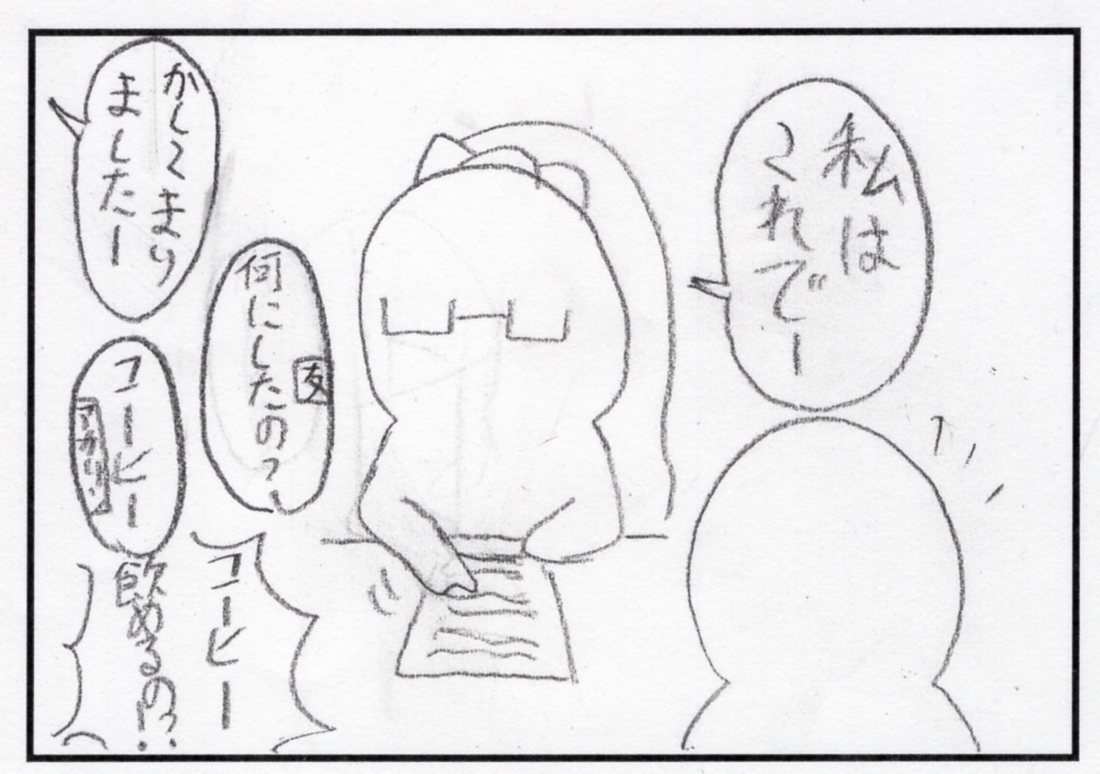 私は
これでー
かしこまり
ましたー
友
何にしたの?
コーヒー
アカリン
コーヒー
飲めるの!?